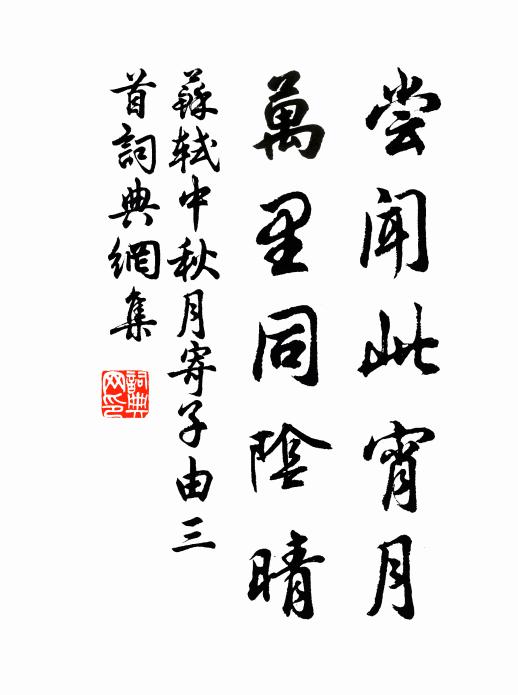 尝闻此宵月
萬里同陰晴
蘇軾中秋月寄子由三
首詞典網集
詞典网印